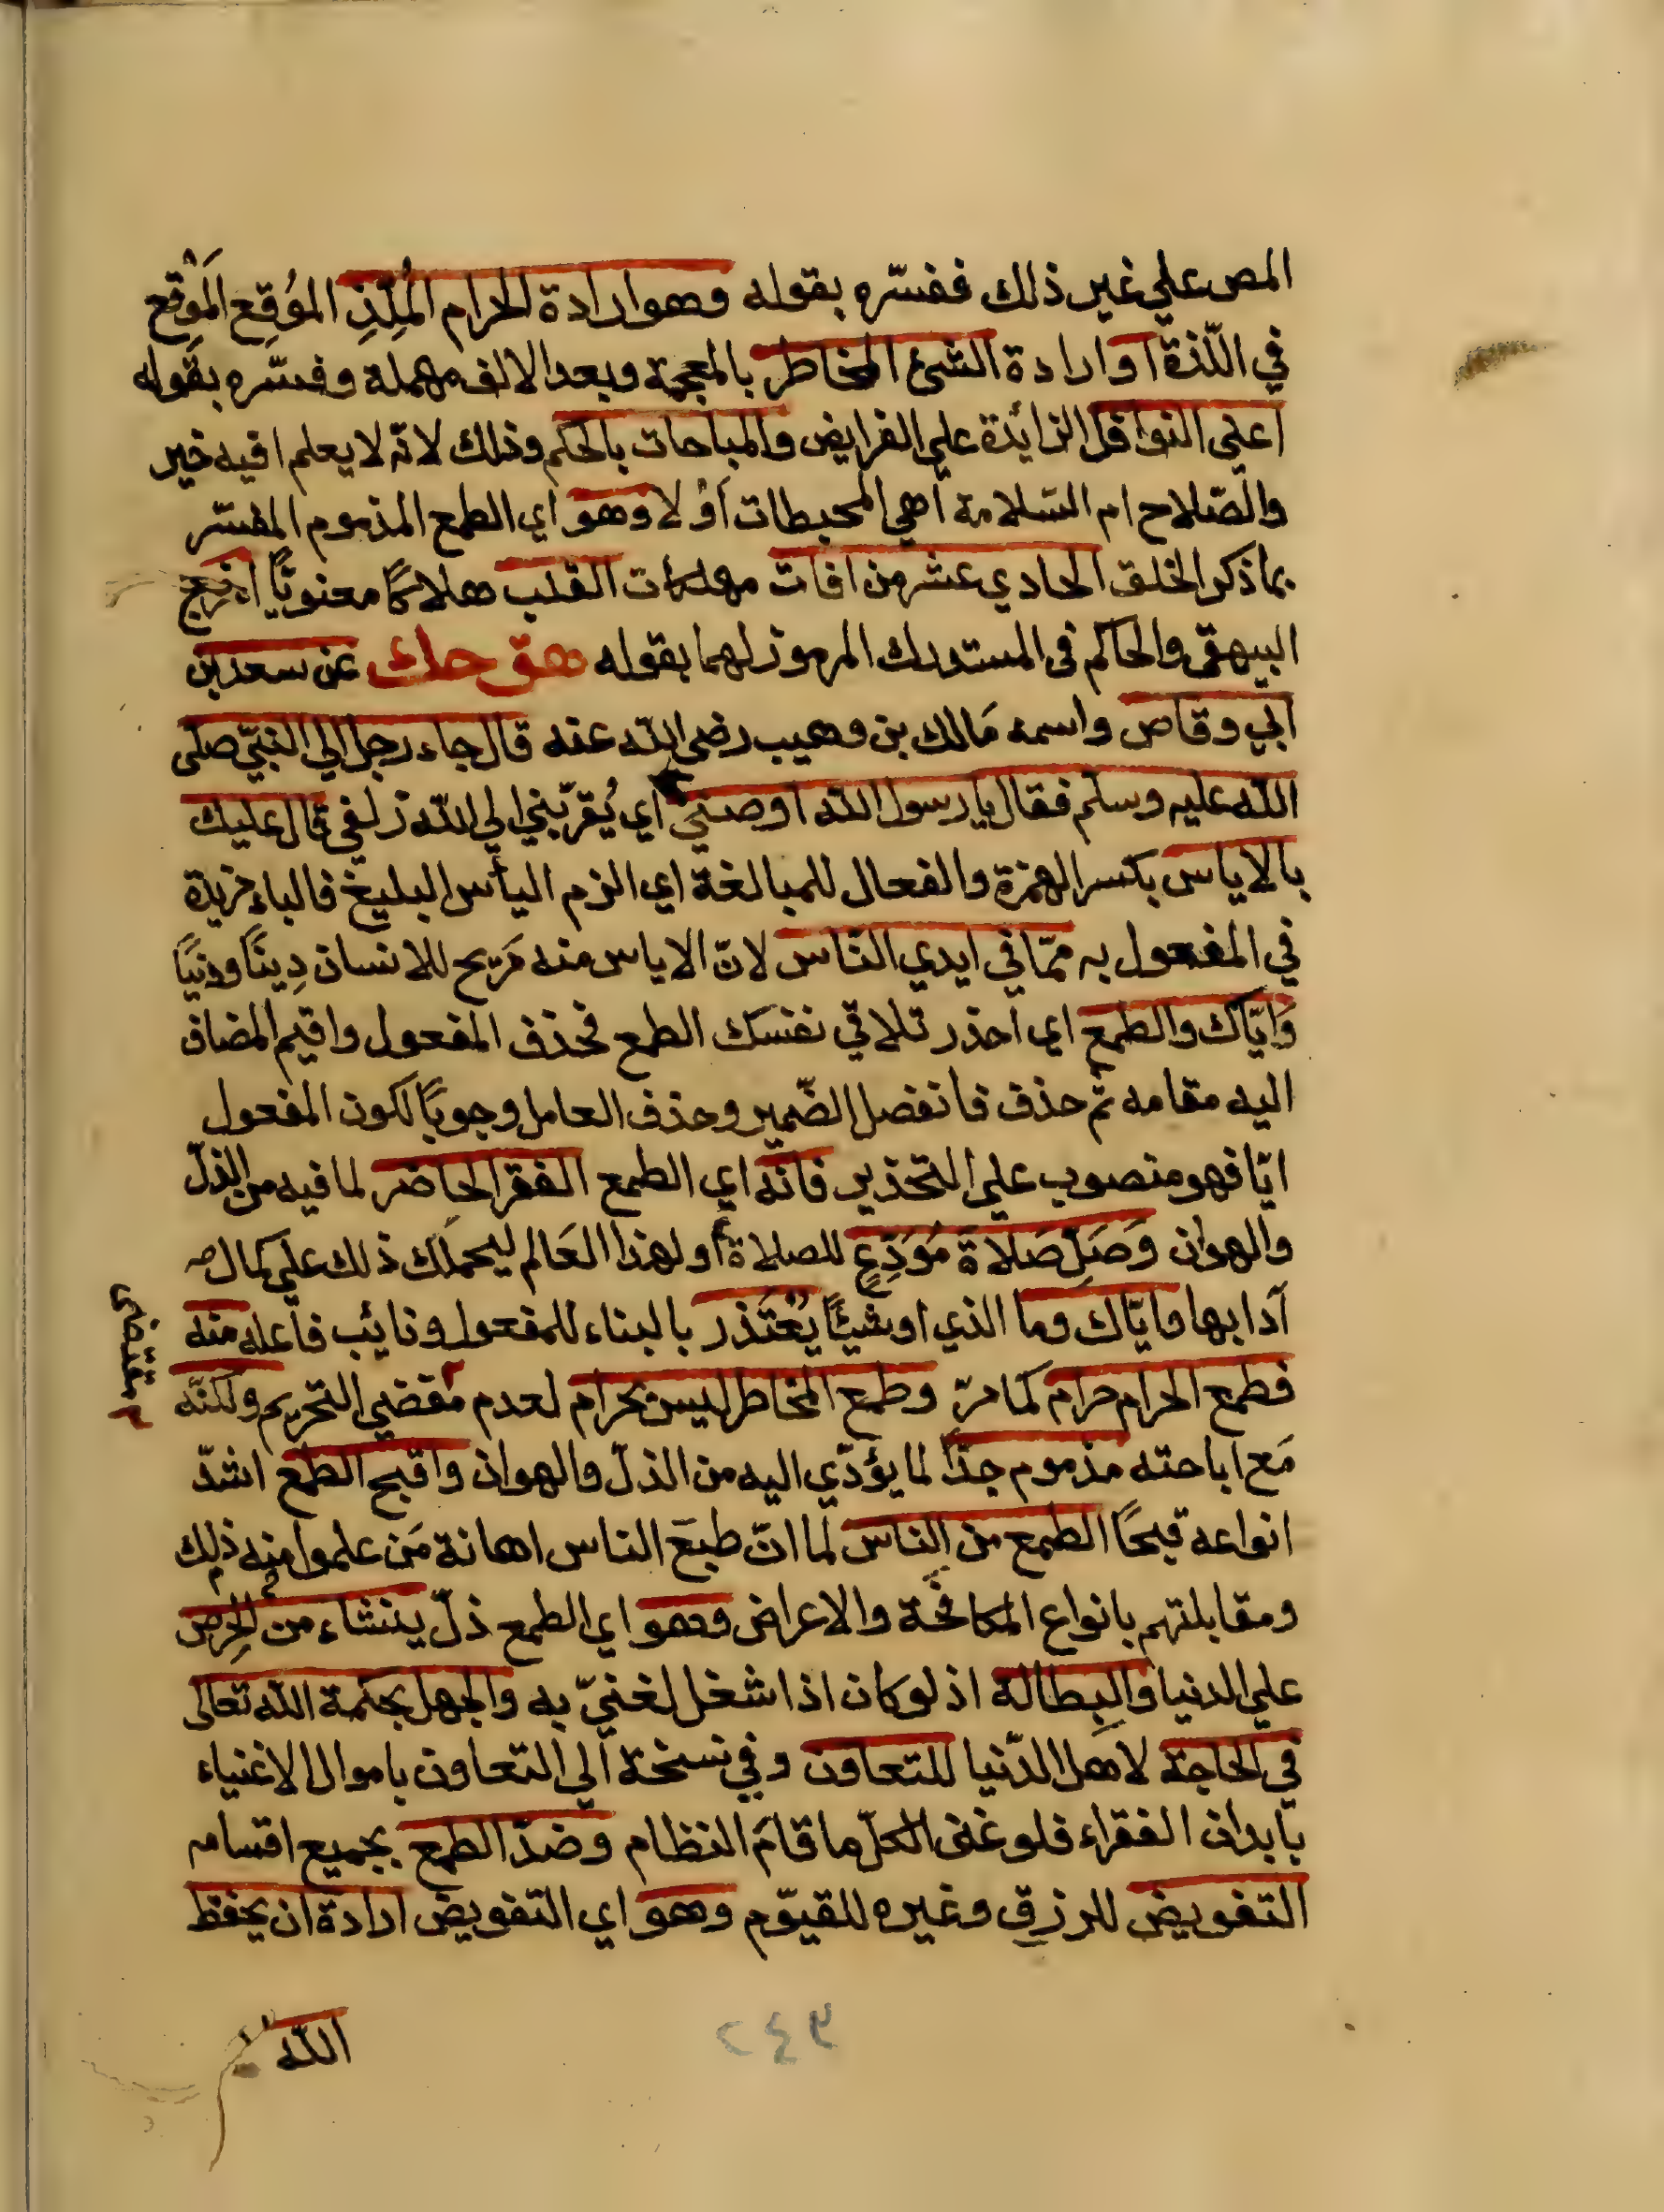 المص علي غير ذلك ففسّره بقوله وهو ارادة الحرام المُلِذِّ المُوقِع المَوْقِع
في اللّذة او ارادة الشئ المخاطر بالمعجمة وبعد الالف مهملة وفسّره بقوله
اعني النوافل الزائدة علي الفرايض والمباحات بالحكم وذلك لانّه لا يعلم افيه خير
والصّلاح ام السّلامة اهي المحبطات اوْ لا وهو اي الطمع المذموم المفسّر
بما ذكر الخلق الحادي عشر من افات مهلكات القلب هلاكًا معنويًّا اخرج
البيهقي والحاكم في المستدرك المرموز لهما بقوله هق حك عن سعد بن
ابي وقاص واسمه مَالك بن وهيب رضي الله عنه قال جاء رجل الي النبيّ صلي
الله عليه وسلم فقال يا رسول الله اوصني اي يُقرّبني الي الله زلفي قال عليك
بالاياس بكسر الهمزة والفعال للمبالغة اي الزم اليأس البليغ فالباء مزيدة
في المفعول به ممّا في ايدي النّاس لانّ الاياس منه مَريح للانسان دِينًا ودنيًا
وَايّاك والطمع اي احذر تلاقي نفسك الطمع فحذف المفعول واقيم المضاف
اليه مقامه ثم حذف فانفصل الضّمير وحذف العامل وجوبًا لكون المفعول
ايّا فهو منصوب علي التحذير فانّه اي الطمع الفقر الحاضر لما فيه من الذلّ
والهوان وَصَلِّ صَلاة مُوَدِّعٍ للصلاة او لهذا العَالم ليحملك ذلك علي كمال
آدابها وايّاك وما الذي او شيئًا يُعْتَذر بالبناء للمفعول ونائب فاعله منه
فطمع الحرام حرام كما مرّ وطمع المخاطر ليس بحرام لعدم مقضي التحريم ولكنّه
مَع اباحته مذموم جدًّا لما يؤدّي اليه من الذلّ والهوان واقبح الطمع اشدّ
انواعه قبحًا الطمع من الناس لما انّ طبعَ الناس اهانة مَن علموا منه ذلك
ومقابلتهم بانواع المكافحة والاعراض وهو اي الطمع ذلّ ينشاء من الحِرص
علي الدنيا والبِطالة اذ لو كان اذا شغل لغنيّ به والجهل بحكمة الله تعالي
في الحاجة لاهل الدّنيا للتعاون وفي نسخة الي التعاون باموال الاغنياء
بابدان الفقراء فلو غني الكلّ ما قامَ النظام وضدّ الطمع بجميع اقسامه
التفويض للرزق وغيره للقيّوم وهو اي التفويض ارادة ان يحفظ
الله
٢٤٩